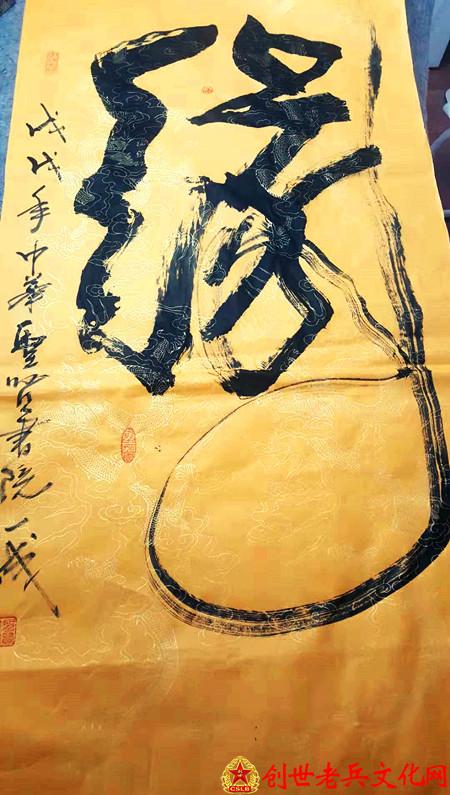 缘
戊戌年中華聖贤書院一
CSLB
创世老兵文化网